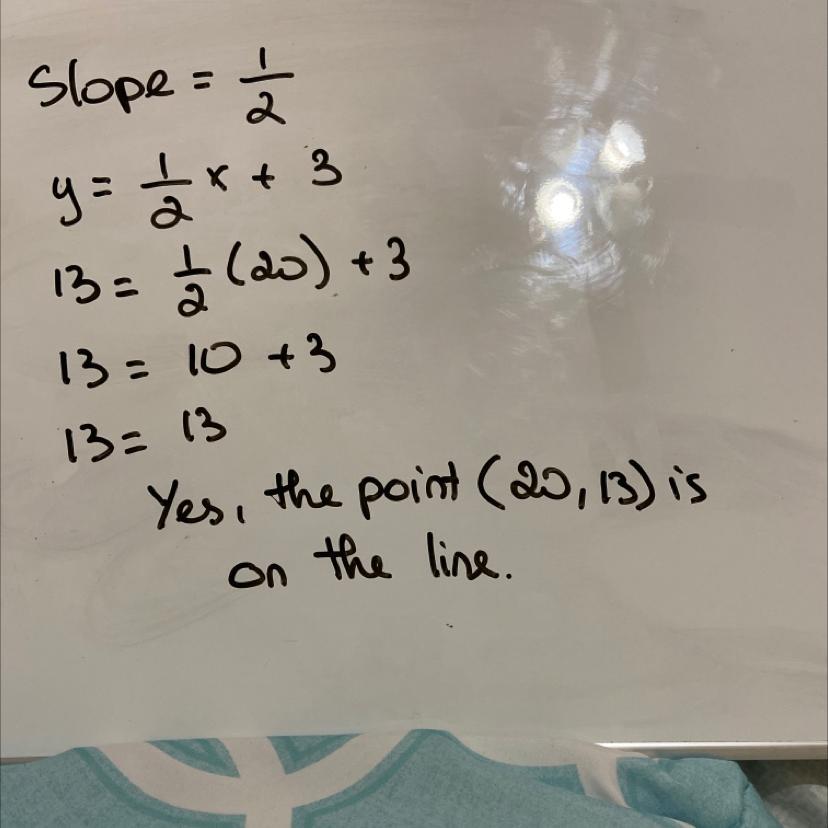 Slope = 1/2
y = 1/2 x + 3
13 = 1/2 (20) + 3
13 = 10 + 3
13 = 13
Yes, the point (20, 13) is
on the line.